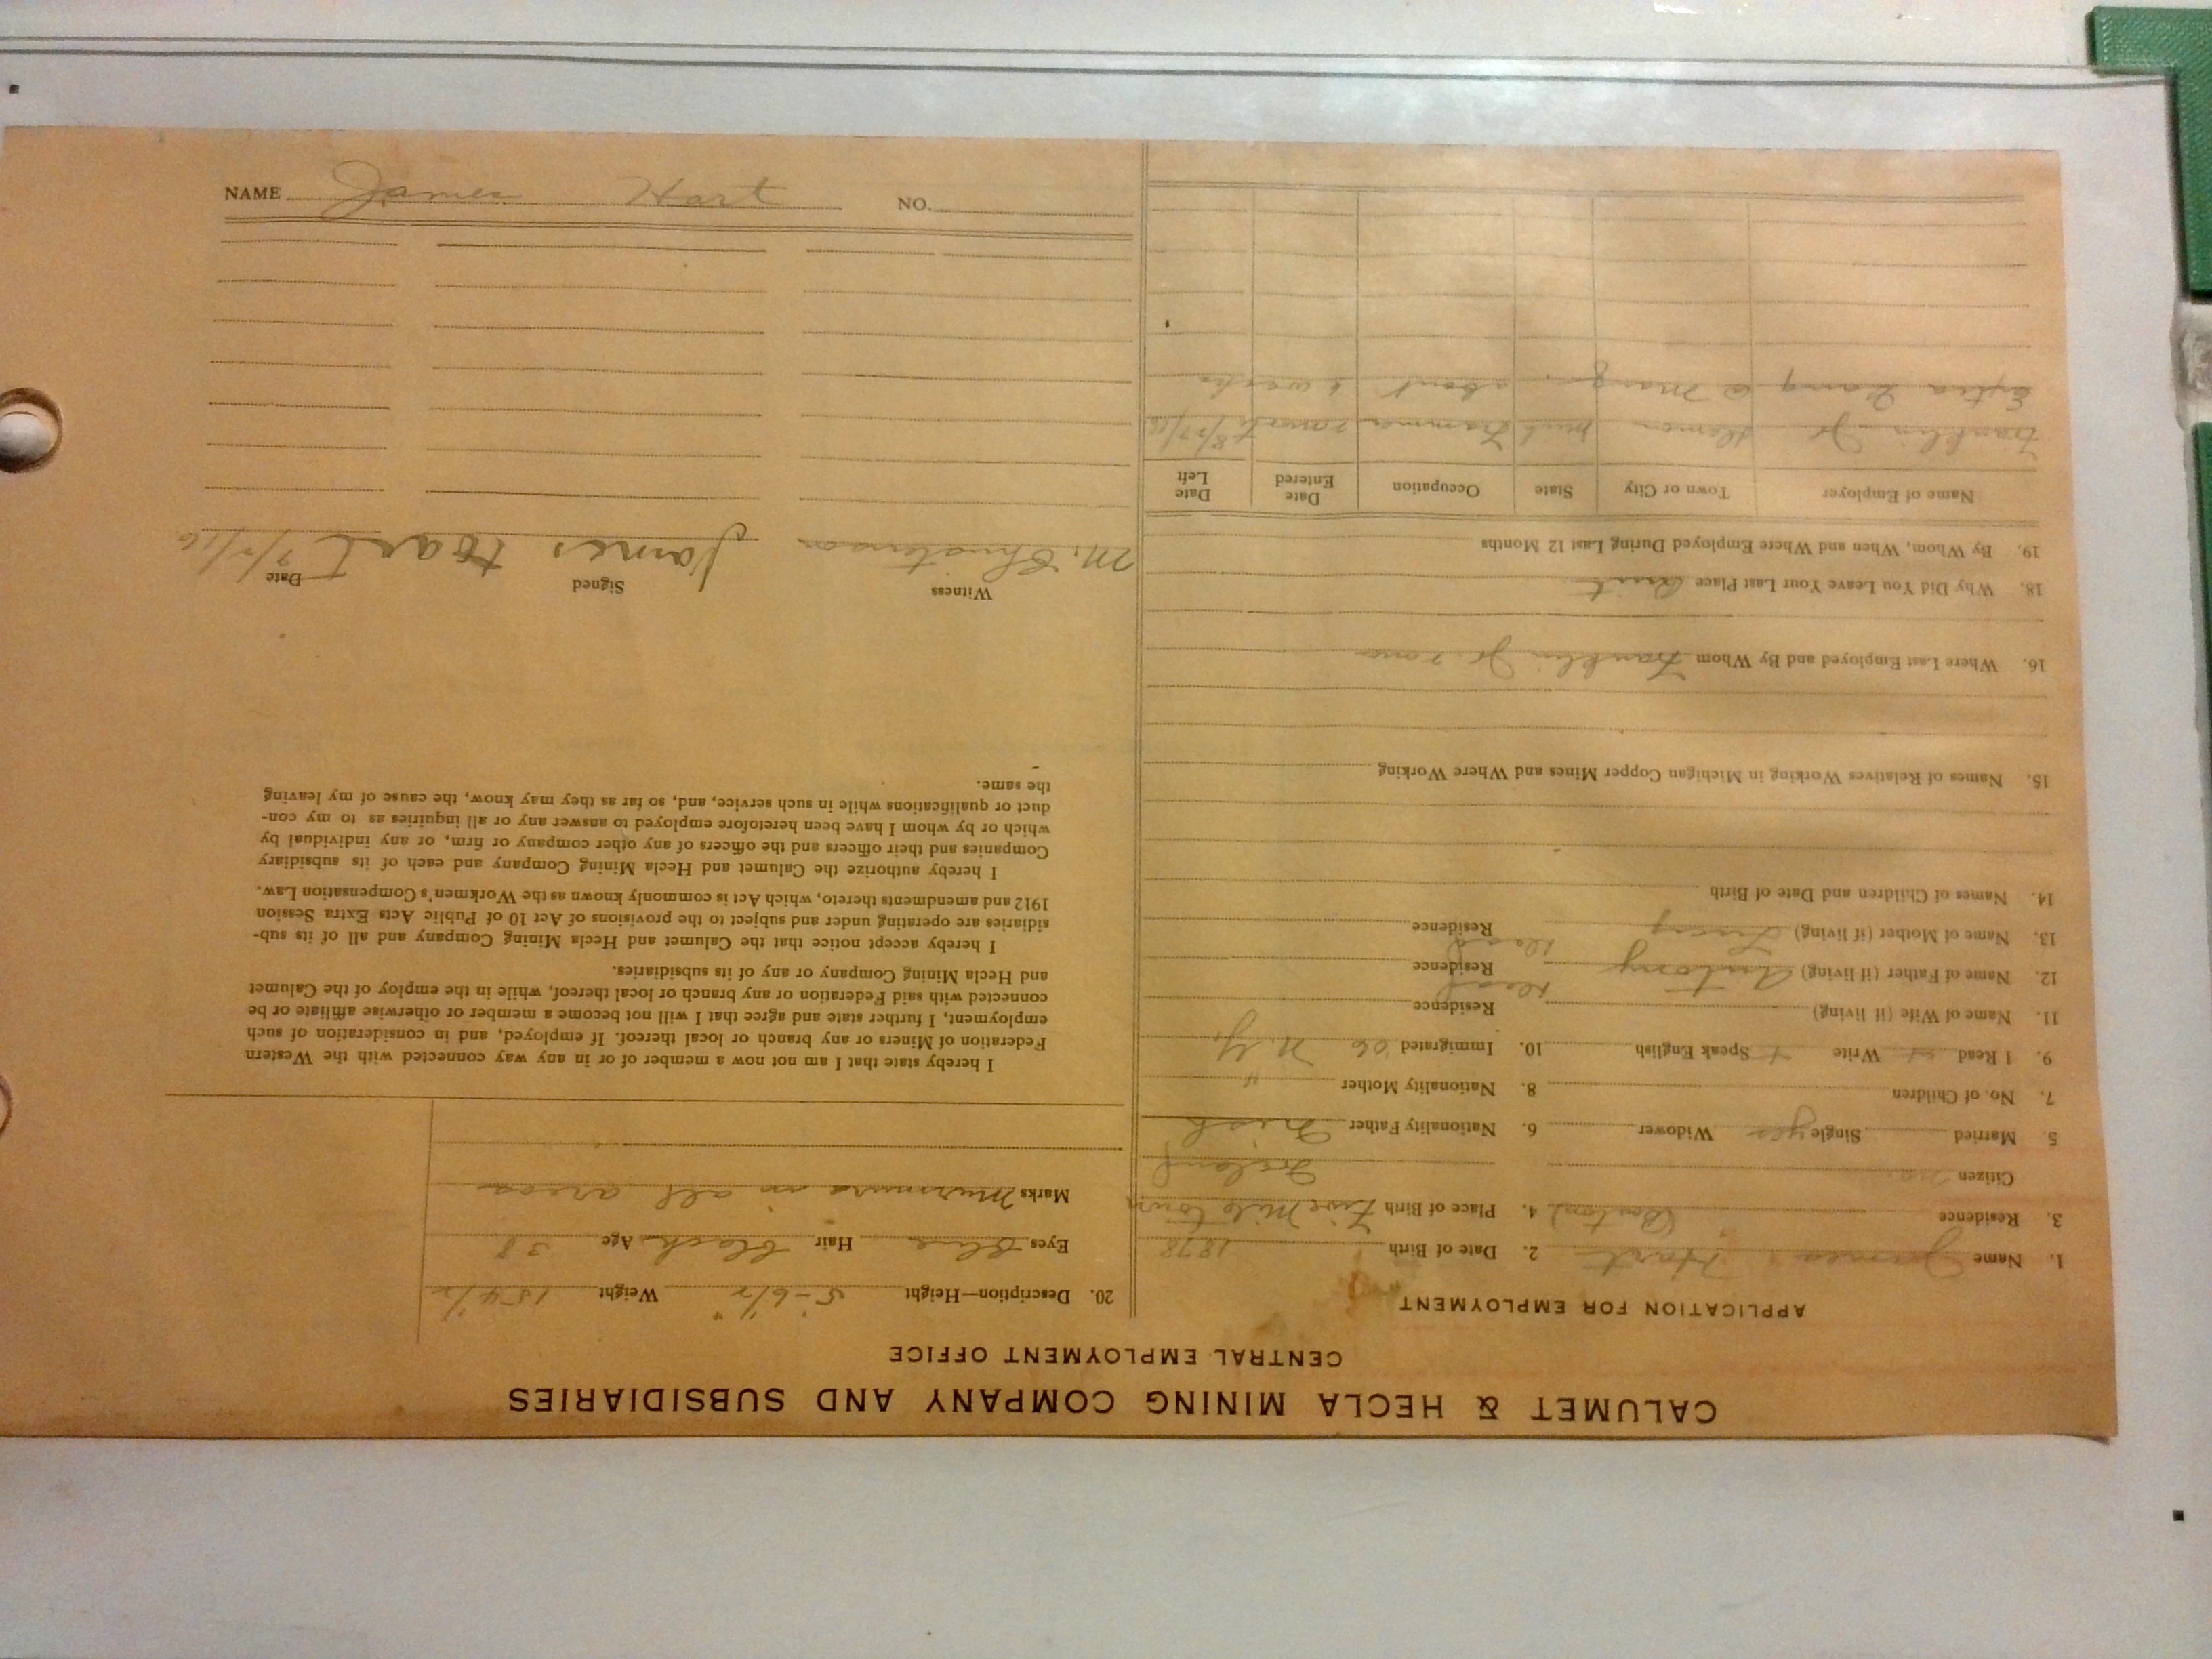 NAME James Hart NO.
CALUMET & HECLA MINING COMPANY AND SUBSIDIARIES
CENTRAL EMPLOYMENT OFFICE
APPLICATION FOR EMPLOYMENT
1. Name James Hart 2. Date of Birth 1878
3. Residence (Boston) 4. Place of Birth Five Mile town
Citizen Ireland
5. Married Single yes Widower 6. Nationality Father Irish
7. No. of Children 8. Nationality Mother "
9. I Read Write Speak English 10. Immigrated '06 N.Y.
11. Name of Wife (if living) Residence
12. Name of Father (if living) Antony dead Residence
13. Name of Mother (if living) dead Residence
14. Names of Children and Date of Birth
15. Names of Relatives Working in Michigan Copper Mines and Where Working
16. Where Last Employed and By Whom Franklin Jr.
18. Why Did You Leave Your Last Place quit
19. By Whom, When and Where Employed During Last 12 Months
Name of Employer Town or City State Occupation Date Entered Date Left
Franklin Jr. Mich Trammer 8/27/16
about 6 weeks
20. Description—Height 5-6 1/2" Weight 154 1/2
Eyes Blue Hair black Age 38
Marks on all
I hereby state that I am not now a member of or in any way connected with the Western
Federation of Miners or any branch or local thereof. If employed, and in consideration of such
employment, I further state and agree that I will not become a member or otherwise affiliate or be
connected with said Federation or any branch or local thereof, while in the employ of the Calumet
and Hecla Mining Company or any of its subsidiaries.
I hereby accept notice that the Calumet and Hecla Mining Company and all of its sub-
sidiaries are operating under and subject to the provisions of Act 10 of Public Acts Extra Session
1912 and amendments thereto, which Act is commonly known as the Workmen's Compensation Law.
I hereby authorize the Calumet and Hecla Mining Company and each of its subsidiary
Companies and their officers and the officers of any other company or firm, or any individual by
which or by whom I have been heretofore employed to answer any or all inquiries as to my con-
duct or qualifications while in such service, and, so far as they may know, the cause of my leaving
the same.
Witness Signed Date
James Hart 9/7/16